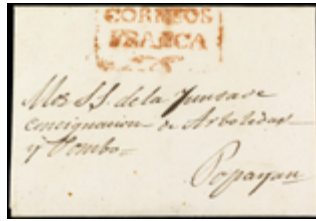 CORREOS
FRANCA
de la Junta de
Consignacion de Arboledas
y Tombo=
Popayan